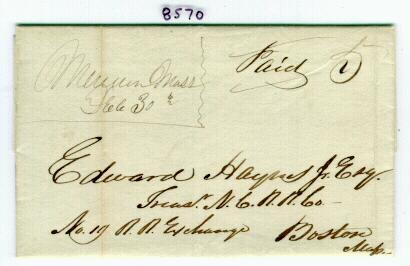 8570
Methuen Mass
Feb 30th
Paid 5
Edward Haynes Jr. Esq.
Treasr. N. C. R. R. Co
No. 19 R. R. Exchange
Boston
Mass.